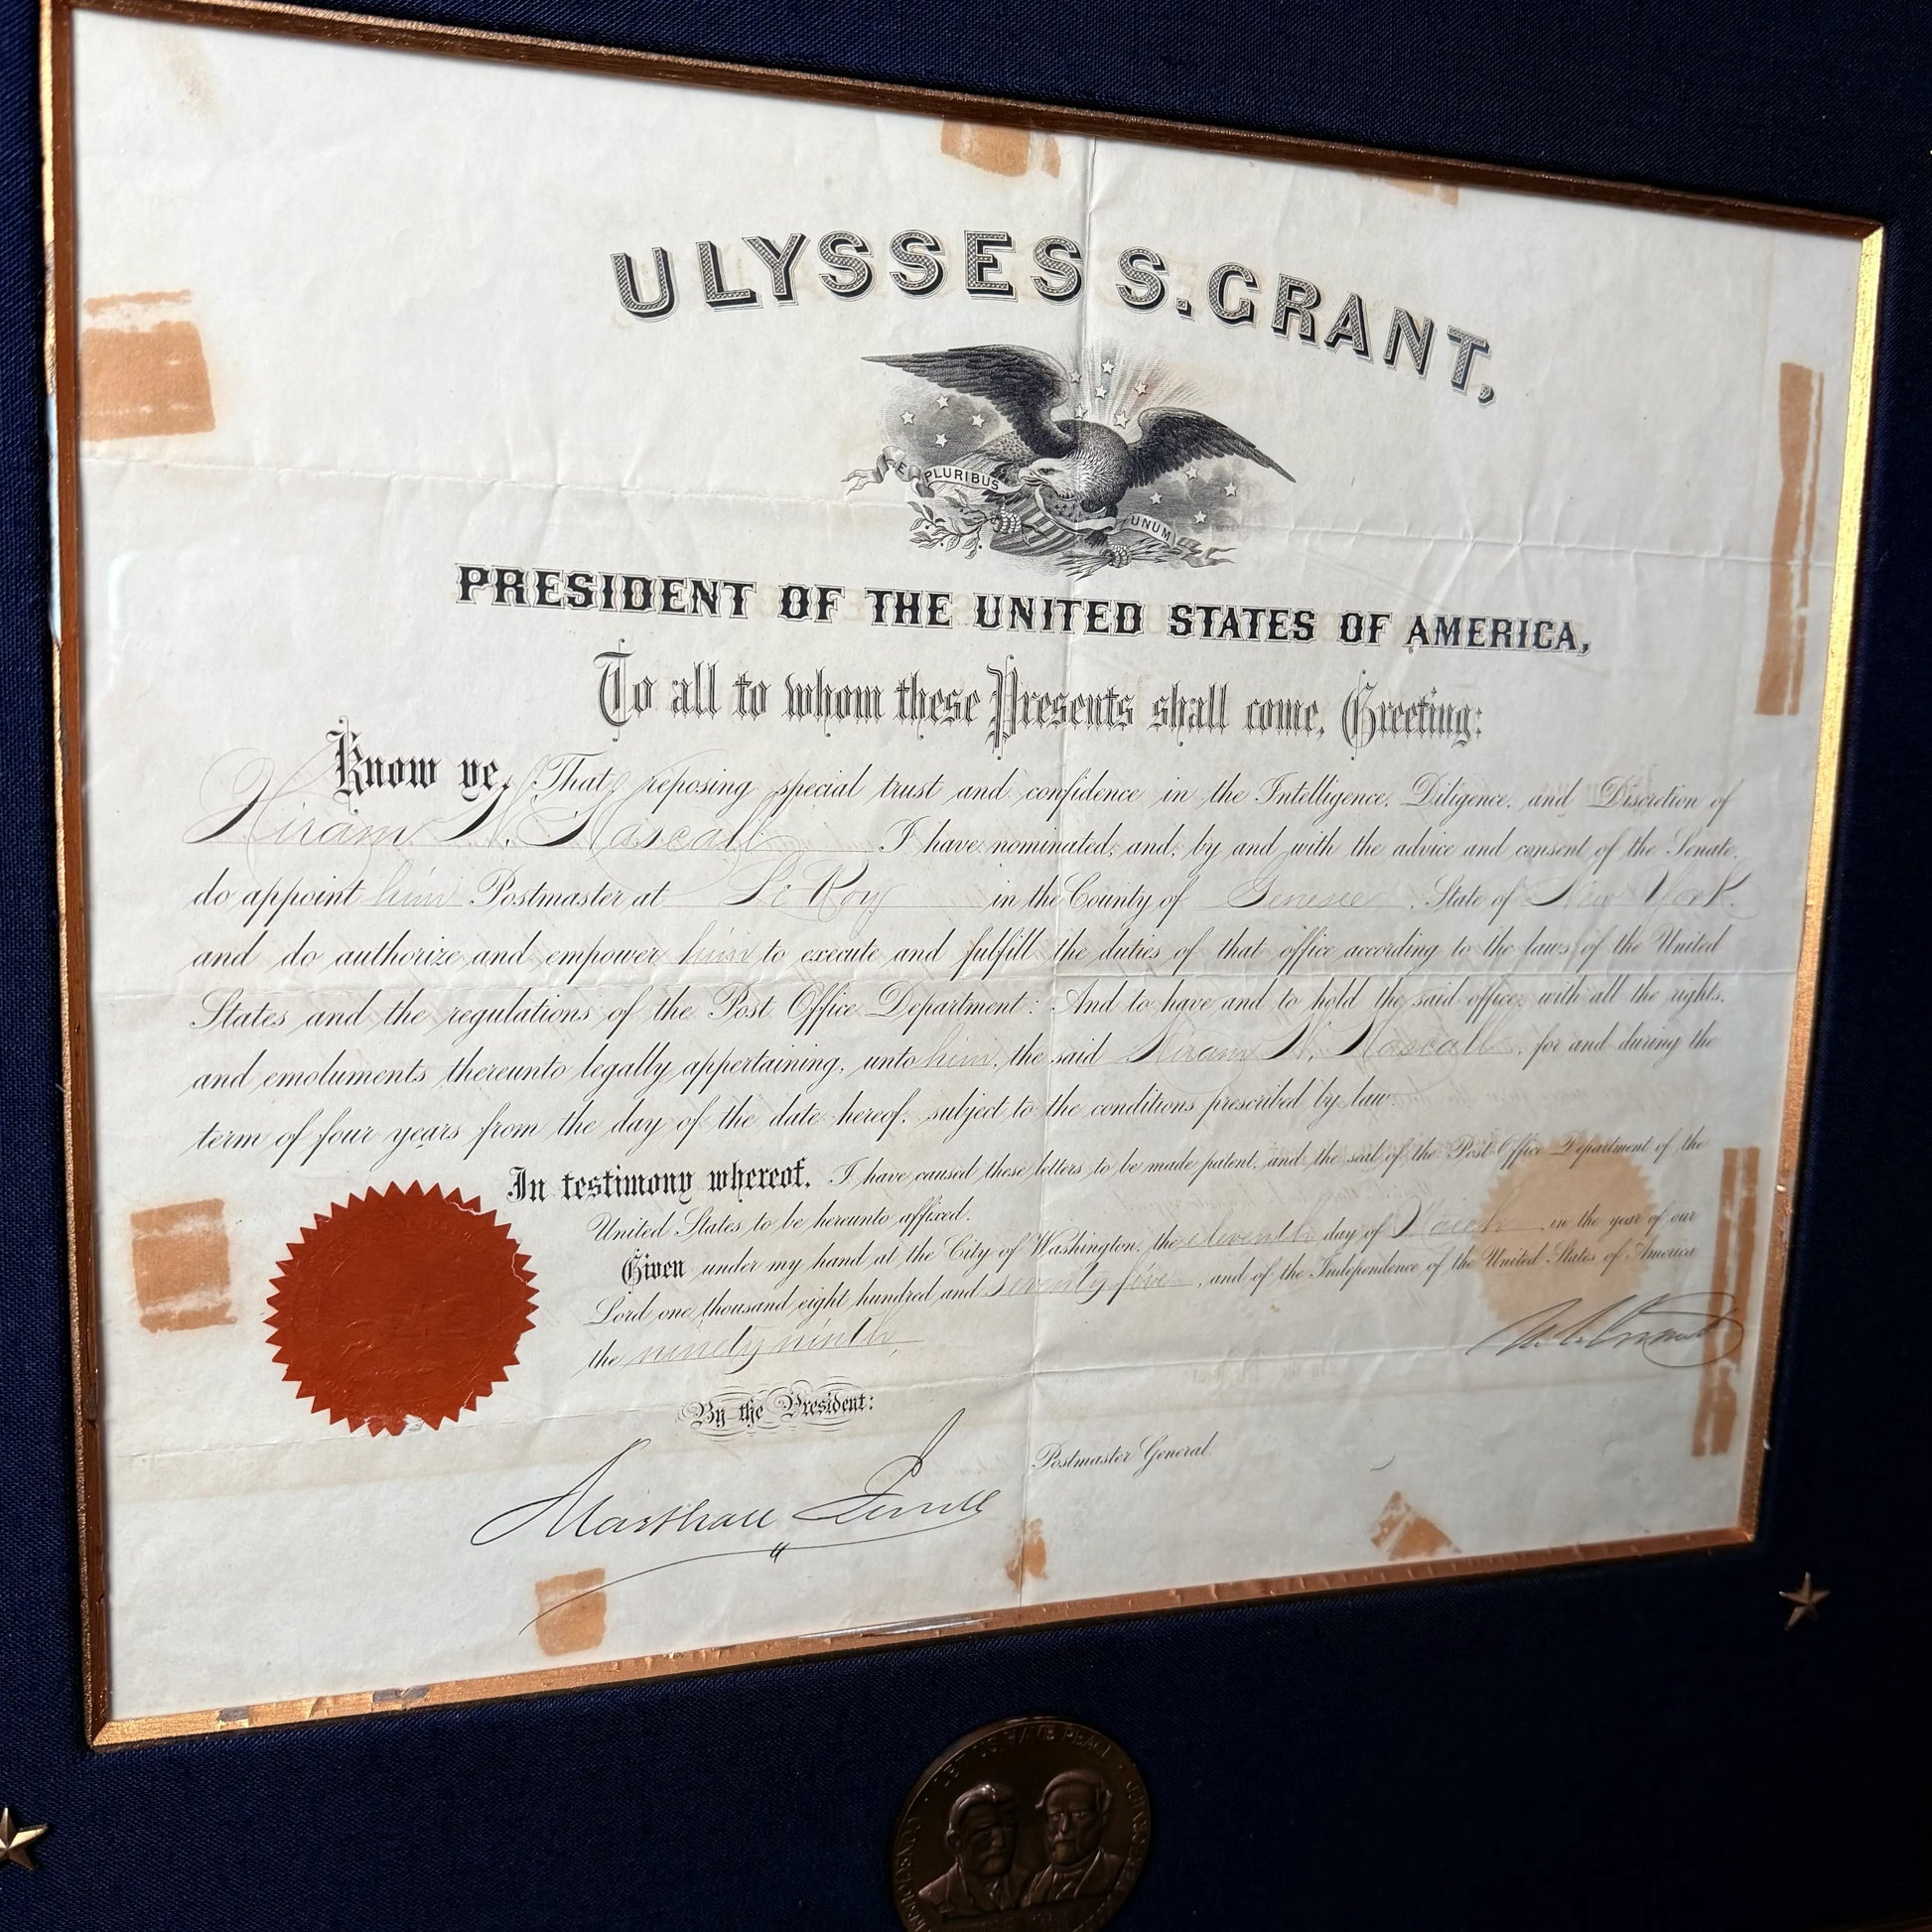 ULYSSES S. GRANT,
E PLURIBUS UNUM
PRESIDENT OF THE UNITED STATES OF AMERICA,
To all to whom these Presents shall come, Greeting:
Know ye, That, reposing special trust and confidence in the Intelligence, Diligence, and Discretion of
Hiram N. Hascall I have nominated, and, by and with the advice and consent of the Senate,
do appoint him Postmaster at Le Roy in the County of Genesee, State of New York
and do authorize and empower him to execute and fulfill the duties of that office according to the laws of the United
States and the regulations of the Post Office Department: And to have and to hold the said office, with all the rights,
and emoluments thereunto legally appertaining, unto him, the said Hiram N. Hascall, for and during the
term of four years from the day of the date hereof, subject to the conditions prescribed by law.
In testimony whereof, I have caused these letters to be made patent, and the seal of the Post Office Department of the
United States to be hereunto affixed.
Given under my hand at the City of Washington, the eleventh day of March, in the year of our
Lord one thousand eight hundred and seventy five, and of the Independence of the United States of America
the ninety ninth.
U. S. Grant
By the President:
Postmaster General.
Marshall Jewell
LET US HAVE PEACE